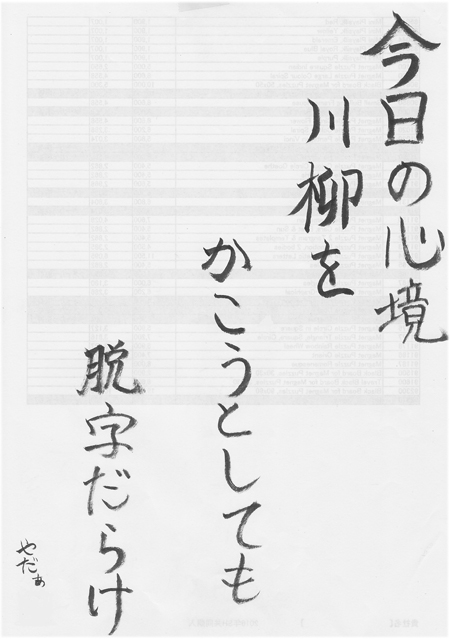 今日の心境
川柳を
かこうとしても
脱字だらけ
やだぁ